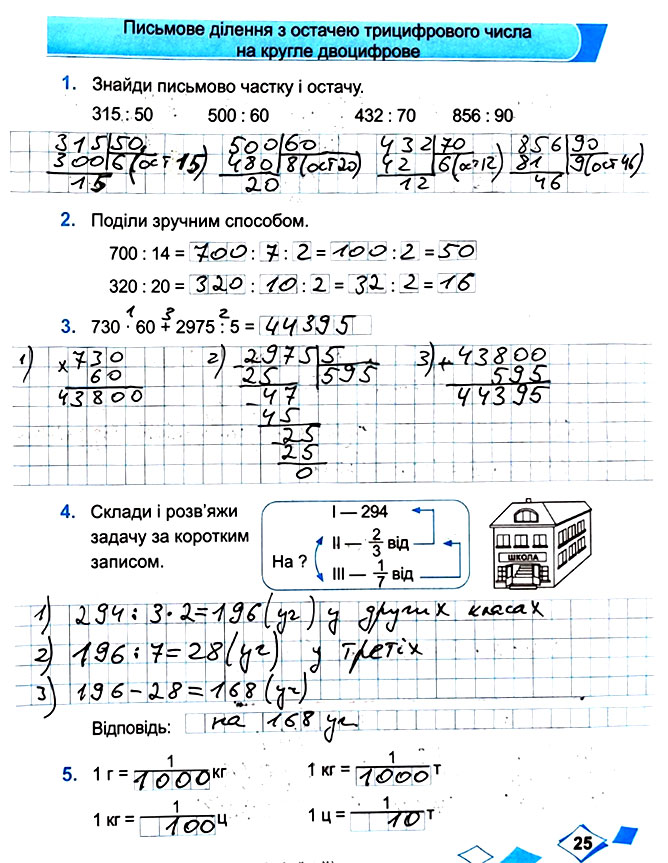 Письмове ділення з остачею трицифрового числа
на кругле двоцифрове
1. Знайди письмово частку і остачу.
315 : 50 500 : 60 432 : 70 856 : 90
315 50 500 60 432 70 856 90
300 6 (ост 15) 480 8 (ост 20) 42 6 (ост 12) 81 9 (ост 46)
15 20 12 46
2. Поділи зручним способом.
700 : 14 = 700 : 7 : 2 = 100 : 2 = 50
320 : 20 = 320 : 10 : 2 = 32 : 2 = 16
1 3 2
3. 730 · 60 + 2975 : 5 = 44395
1) × 730 2) - 2975 5 3) + 43800
60 25 595 595
43800 - 47 44395
45
- 25
25
0
4. Склади і розв’яжи
задачу за коротким
записом.
І — 294
ІІ — 2/3 від
На ?
ІІІ — 1/7 від
ШКОЛА
1) 294 : 3 · 2 = 196 (уч) у других класах
2) 196 : 7 = 28 (уч) у третіх
3) 196 - 28 = 168 (уч)
Відповідь: на 168 уч
5. 1 г = 1/1000 кг 1 кг = 1/1000 т
1 кг = 1/100 ц 1 ц = 1/10 т
25